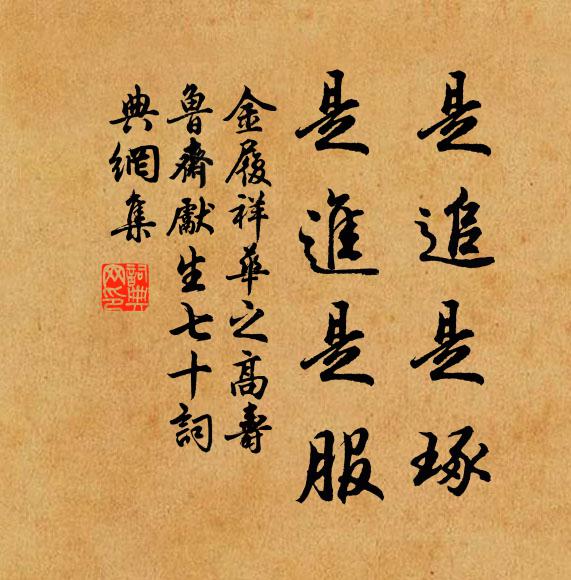 是追是琢
是進是服
金履祥華之高壽
魯齋獻生七十詞
典網集
詞典
网印